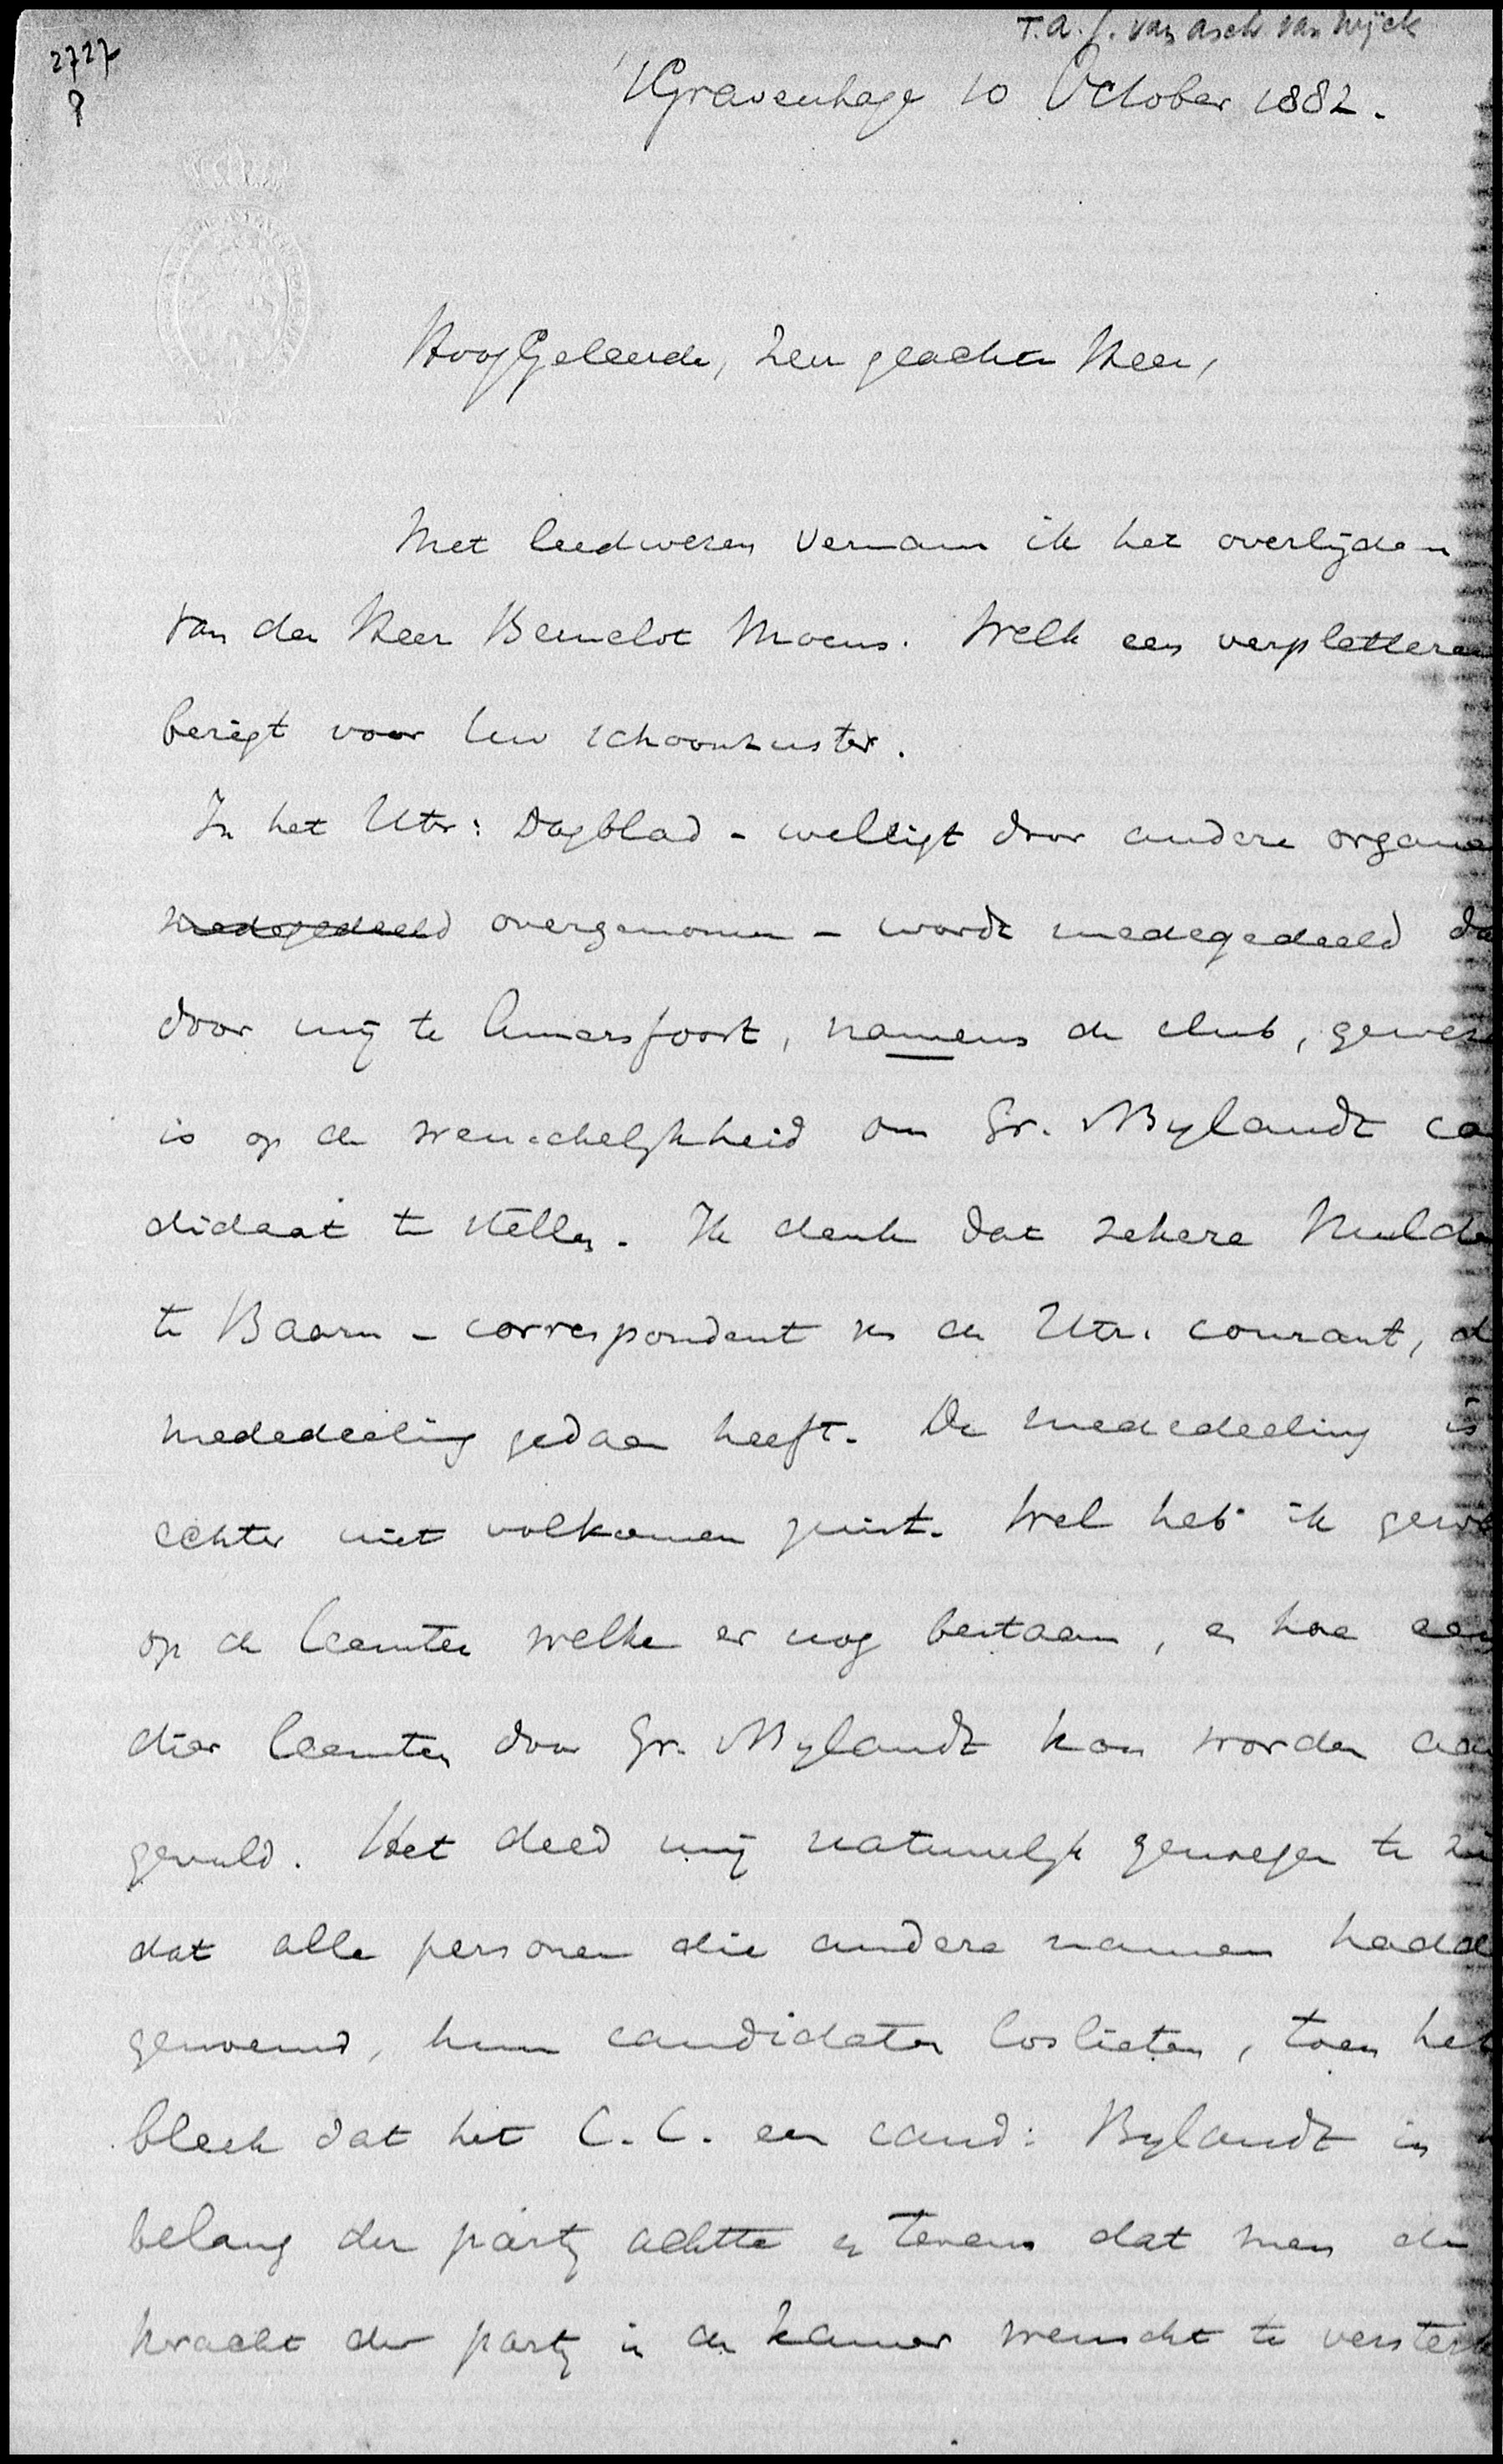 T.A.J. van Asch van Wijck
2727
P
'sGravenhage 10 October 1882.
HoogGeleerde, Zeer geachte Heer,
Met leedwezen vernam ik het overlijden
van den Heer Bernelot Moens. Welk een verpletteren
berigt voor Uw schoonzuster.
In het Utr: Dagblad - welligt door andere organe
medegedeeld overgenomen - wordt medegedeeld da
door mij te Amersfoort, namens de club, gewez
is op de wenschelijkheid om Gr. Bylandt ca
didaat te stellen. Ik denk dat zekere Muld
te Baarn - correspondent v. de Utr. courant, d
mededeeling gedaan heeft. De mededeeling is
echter niet volkomen juist. Wel heb ik gewe
op de leemten welke er nog bestaan, en hoe een
dier leemten door Gr. Bylandt kon worden aan
gevuld. Het deed mij natuurlijk genoegen te zi
dat alle personen die andere namen hadde
genoemd, hun candidaten loslieten, toen het
bleek dat het C.C. een cand: Bylandt in
belang der partij achtte en tevens dat men de
kracht der partij in de kamer wenscht te versterk